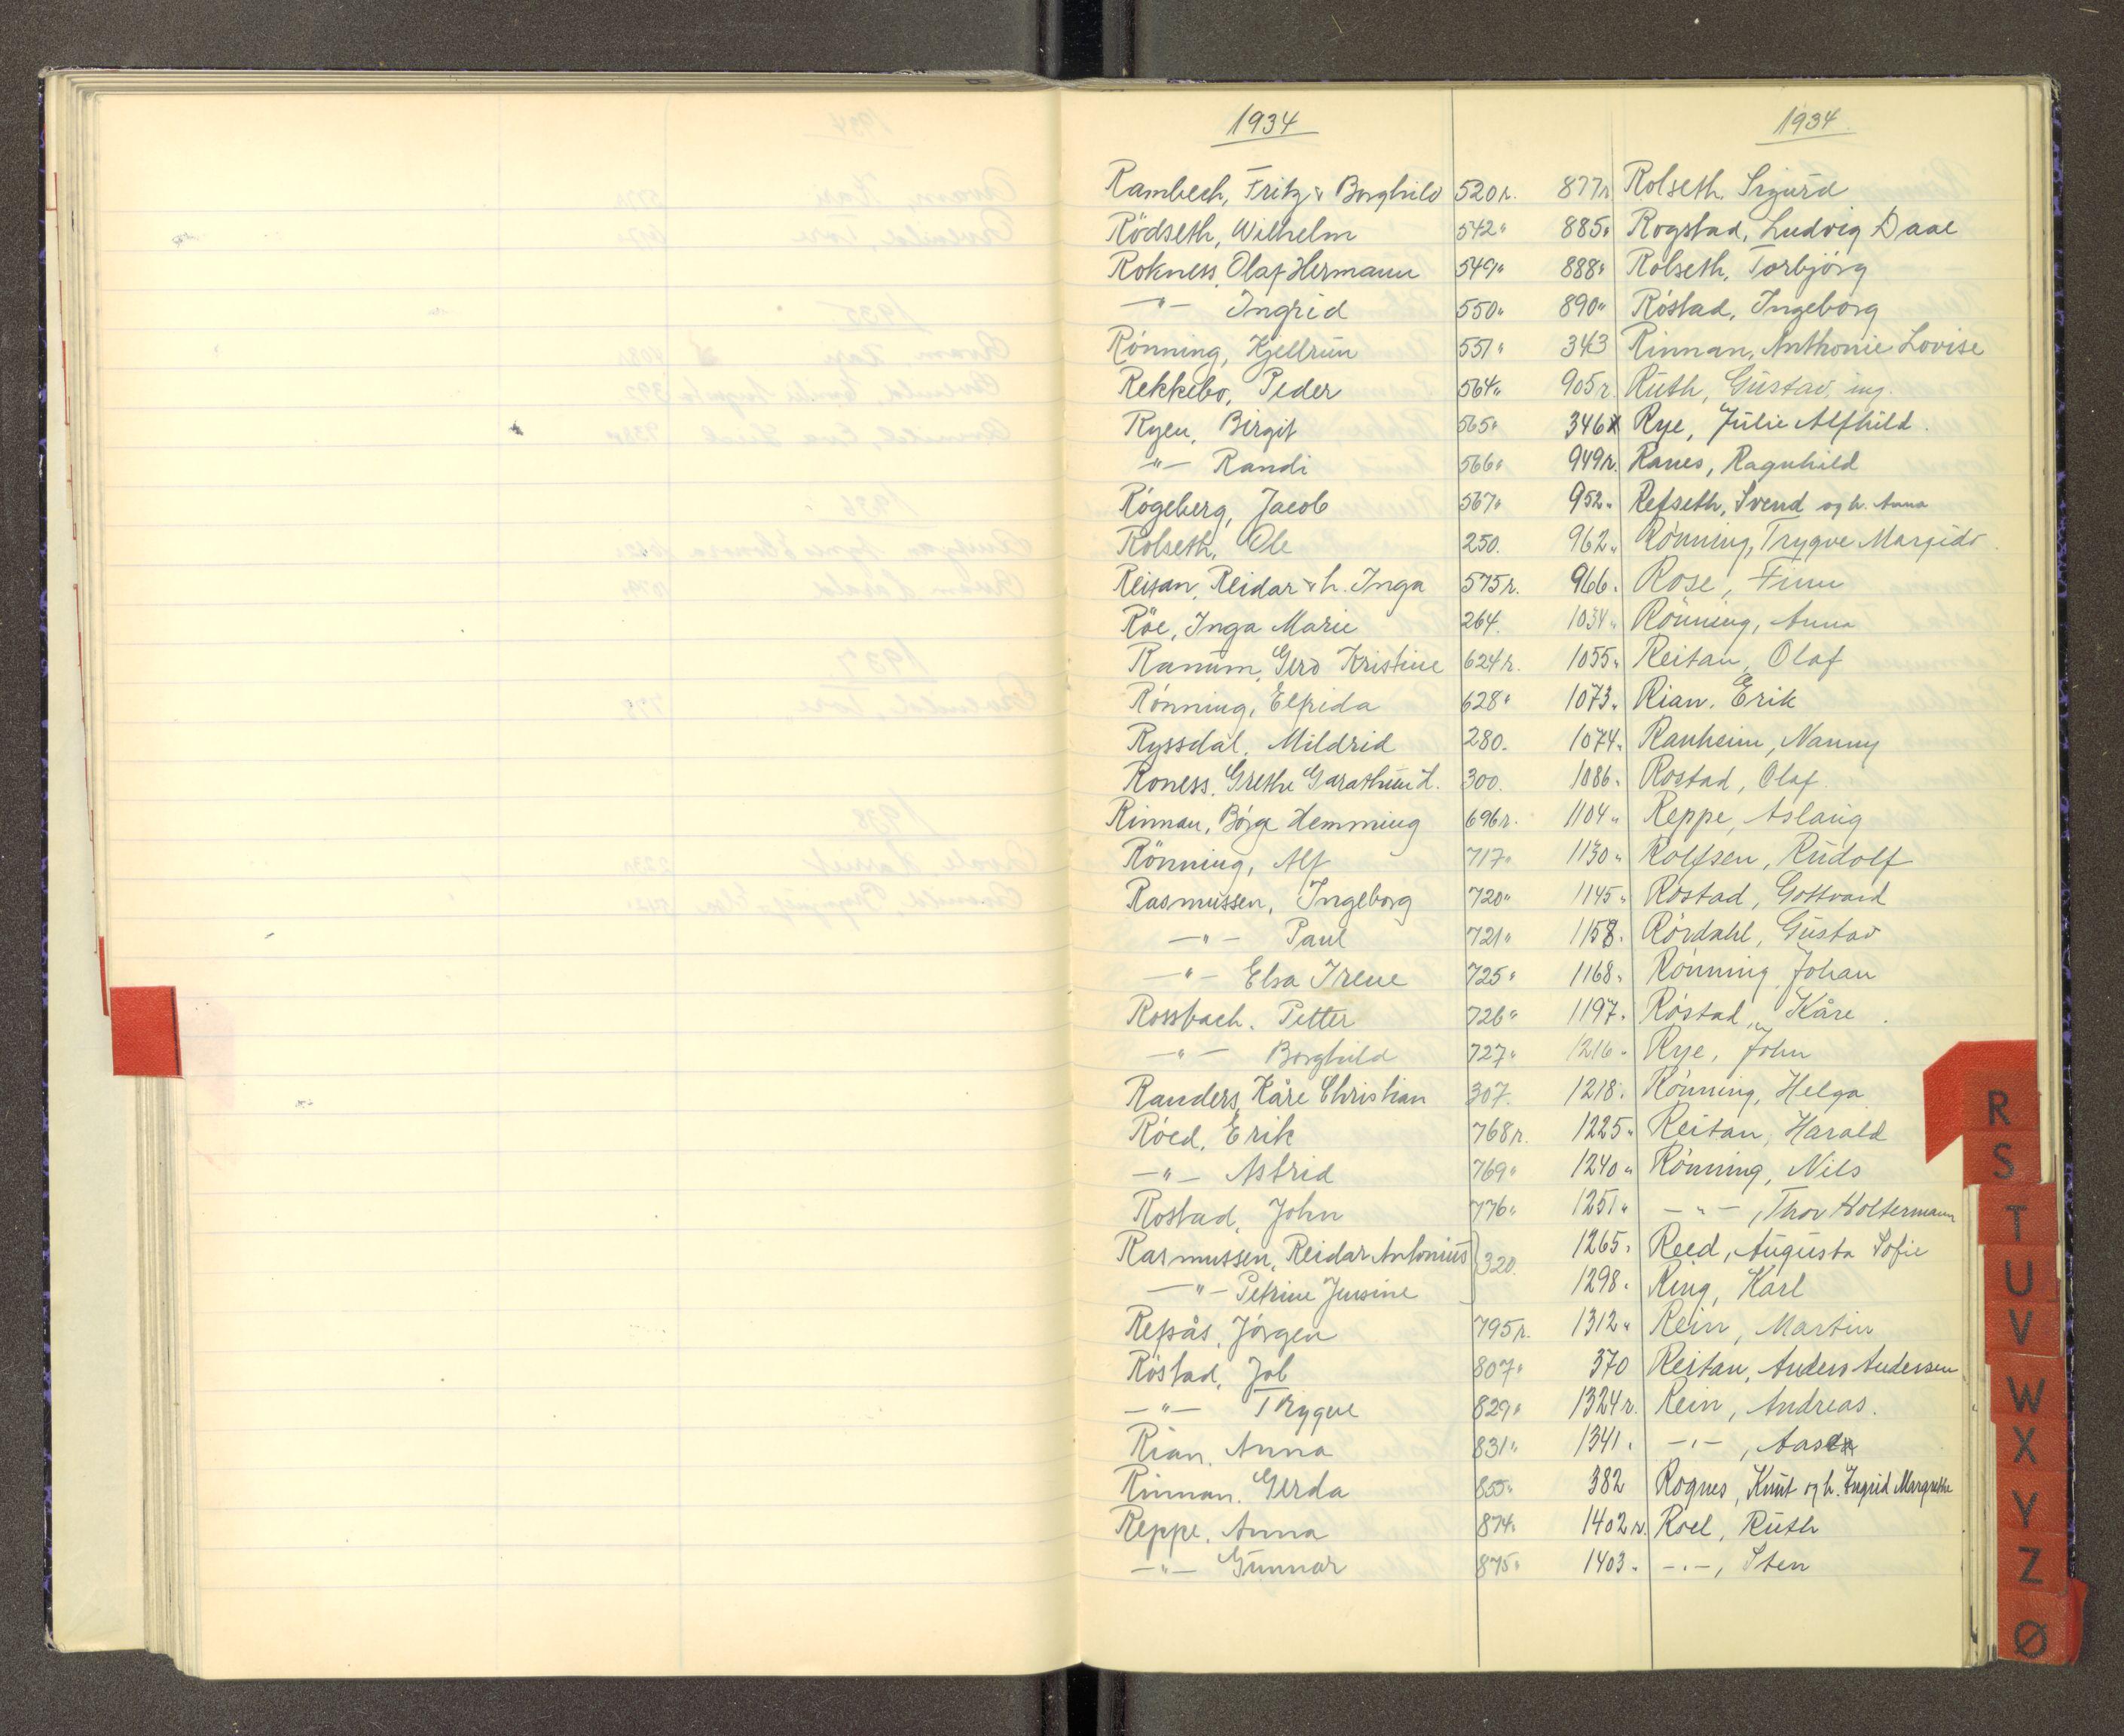 1934
Rambech, Fritz & Borghild 520 r.
Rödseth, Wilhelm 542 "
Rokness, Olaf Hermann 549 "
—"— Ingrid 550 "
Rönning, Kjellrun 551 "
Rekkebo, Peder 564 "
Ryen, Birgit 565 "
—"— Randi 566 "
Rögeberg, Jacob 567 "
Rolseth, Ole 250.
Reitan, Reidar & h. Inga 575 r.
Röe, Inga Marie 264.
Ranum, Gerd Kristine 624 r.
Rönning, Elfrida 628 "
Ryssdal, Mildrid 280.
Roness, Grethe 300.
Rinnan, Börge Hemming 696 r.
Rönning, Alf 717 "
Rasmussen, Ingeborg 720 "
—"— Paul 721 "
—"— Elsa Irene 725 "
Rossbach, Petter 726 "
—"— Borghild 727 "
Randers, Kåre Christian 307.
Röed, Erik 768 r.
—"— Astrid 769 "
Rostad, John 776 "
Rasmussen, Reidar Antonius } 320.
—"— Petrine Jensine
Refsås, Jörgen 795 r.
Röstad, Job 807 "
—"— Trygve 829 "
Rian, Anna 831 "
Rinnan, Gerda 855 "
Reppe, Anna 874 "
—"— Gunnar 875 "
1934
877 r Rolseth, Sigurd
885 " Rogstad, Ludvig Daae
888 " Rolseth, Torbjörg
890 " Röstad, Ingeborg
343 Rinnan, Anthonie Lovise
905 r Ruth, Gustav, ing.
346 Rye, Julie Alfhild.
949 r. Ranes, Ragnhild
952 " Refseth, Svend og h. Anna
962 " Rönning, Trygve Margido
966 " Rose, Finn
1034 " Rönning, Anna
1055 " Reitan, Olaf
1073 " Rian, Erik
1074 " Ranheim, Nanny
1086 " Rostad, Olaf
1104 " Reppe, Aslaug
1130 " Rolfsen, Rudolf
1145 " Rostad, Gottvard
1158 " Rördahl, Gustav
1168 " Rönning, Johan
1197 " Röstad, Kåre
1216 " Rye, John
1218 " Rönning, Helga
1225 " Reitan, Harald
1240 " Rönning, Nils
1251 " —"—, Thor Holtermann
1265 " Reed, Augusta Sofie
1298 " Ring, Karl
1312 " Rein, Martin
370 Reitan, Anders Andersen
1324 r. Rein, Andreas.
1341 " —"—, Aase
382 Rognes, Knut og h. Ingrid Margrethe
1402 r. Roel, Ruth
1403 " —"—, Sten
R
S
T
U
V
W
X
Y
Z
Ø